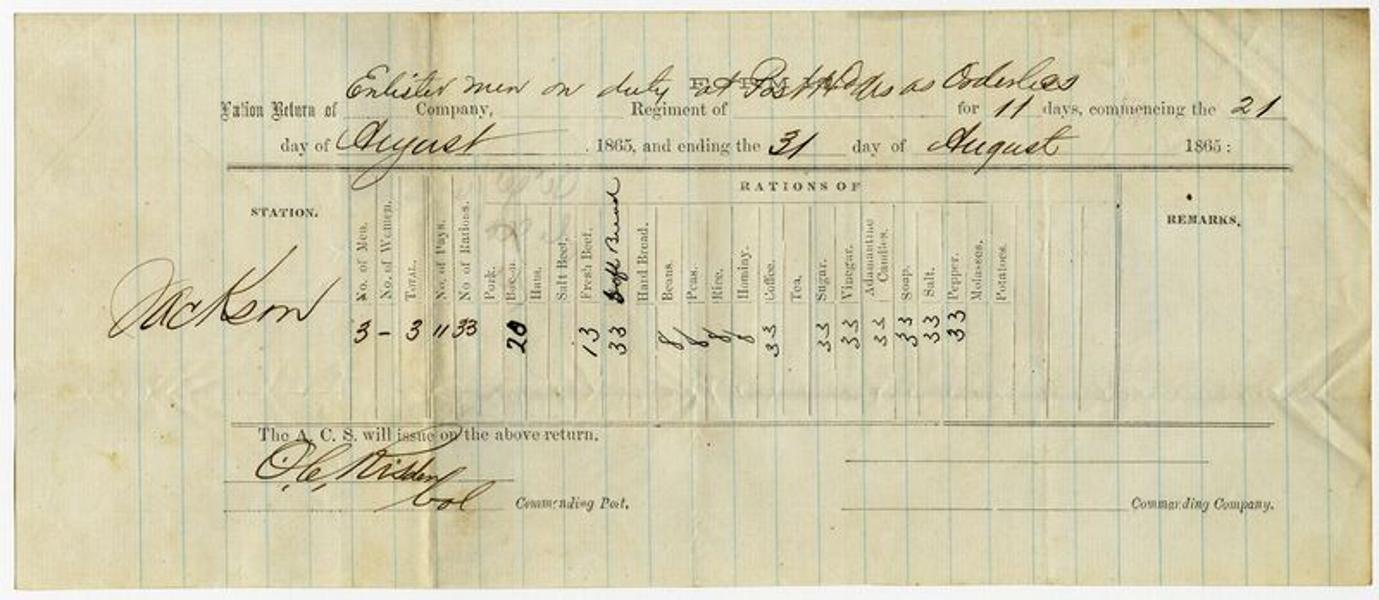 Enlisted men on duty at Post Hd Qrs as Orderlies
Ration Return of Company, Regiment of for 11 days, commencing the 21
day of August 1865, and ending the 31 day of August 1865:
RATIONS OF
STATION. No. of Men. No. of Women. TOTAL. No. of Days. No of Rations. Pork. Bacon. Ham. Salt Beef. Fresh Beef. Soft Bread Hard Bread. Beans. Peas. Rice. Hominy. Coffee. Tea. Sugar. Vinegar. Adamantine Candles. Soap. Salt. Pepper. Molasses. Potatoes. REMARKS.
Jackson 3 – 3 11 33 20 13 33 8 8 8 8 33 33 33 33 33 33 33
The A. C. S. will issue on the above return.
O. C. Risden
Col Commanding Post. Commanding Company.